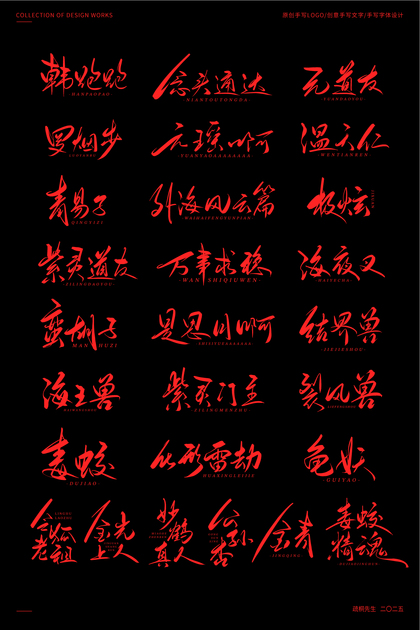 COLLECTION OF DESIGN WORKS
原创手写LOGO/创意手写文字/手写字体设计
韩跑跑
HANPAOPAO
念头通达
NIANTOUTONGDA
元道友
YUANDAOYOU
罗烟步
LUOYANBU
元瑶
温天仁
WENTIANREN
青易子
QINGYIZI
外海风云篇
WAIHAIFENGYUNPIAN
极炫
紫灵道友
ZILINGDAOYOU
万事求稳
WANSHIQIUWEN
海夜叉
HAIYECHA
蛮胡子
MANHUZI
结界兽
JIEJIESHOU
海王兽
紫灵门主
ZILINGMENZHU
裂风兽
LIEFENGSHOU
毒蛟
DUJIAO
化形雷劫
HUAXINGLEIJIE
龟妖
GUIYAO
金光上人
妙鹤真人
公孙杏
金青
JINQING
毒蛟精魂
顽桐先生 二〇二五